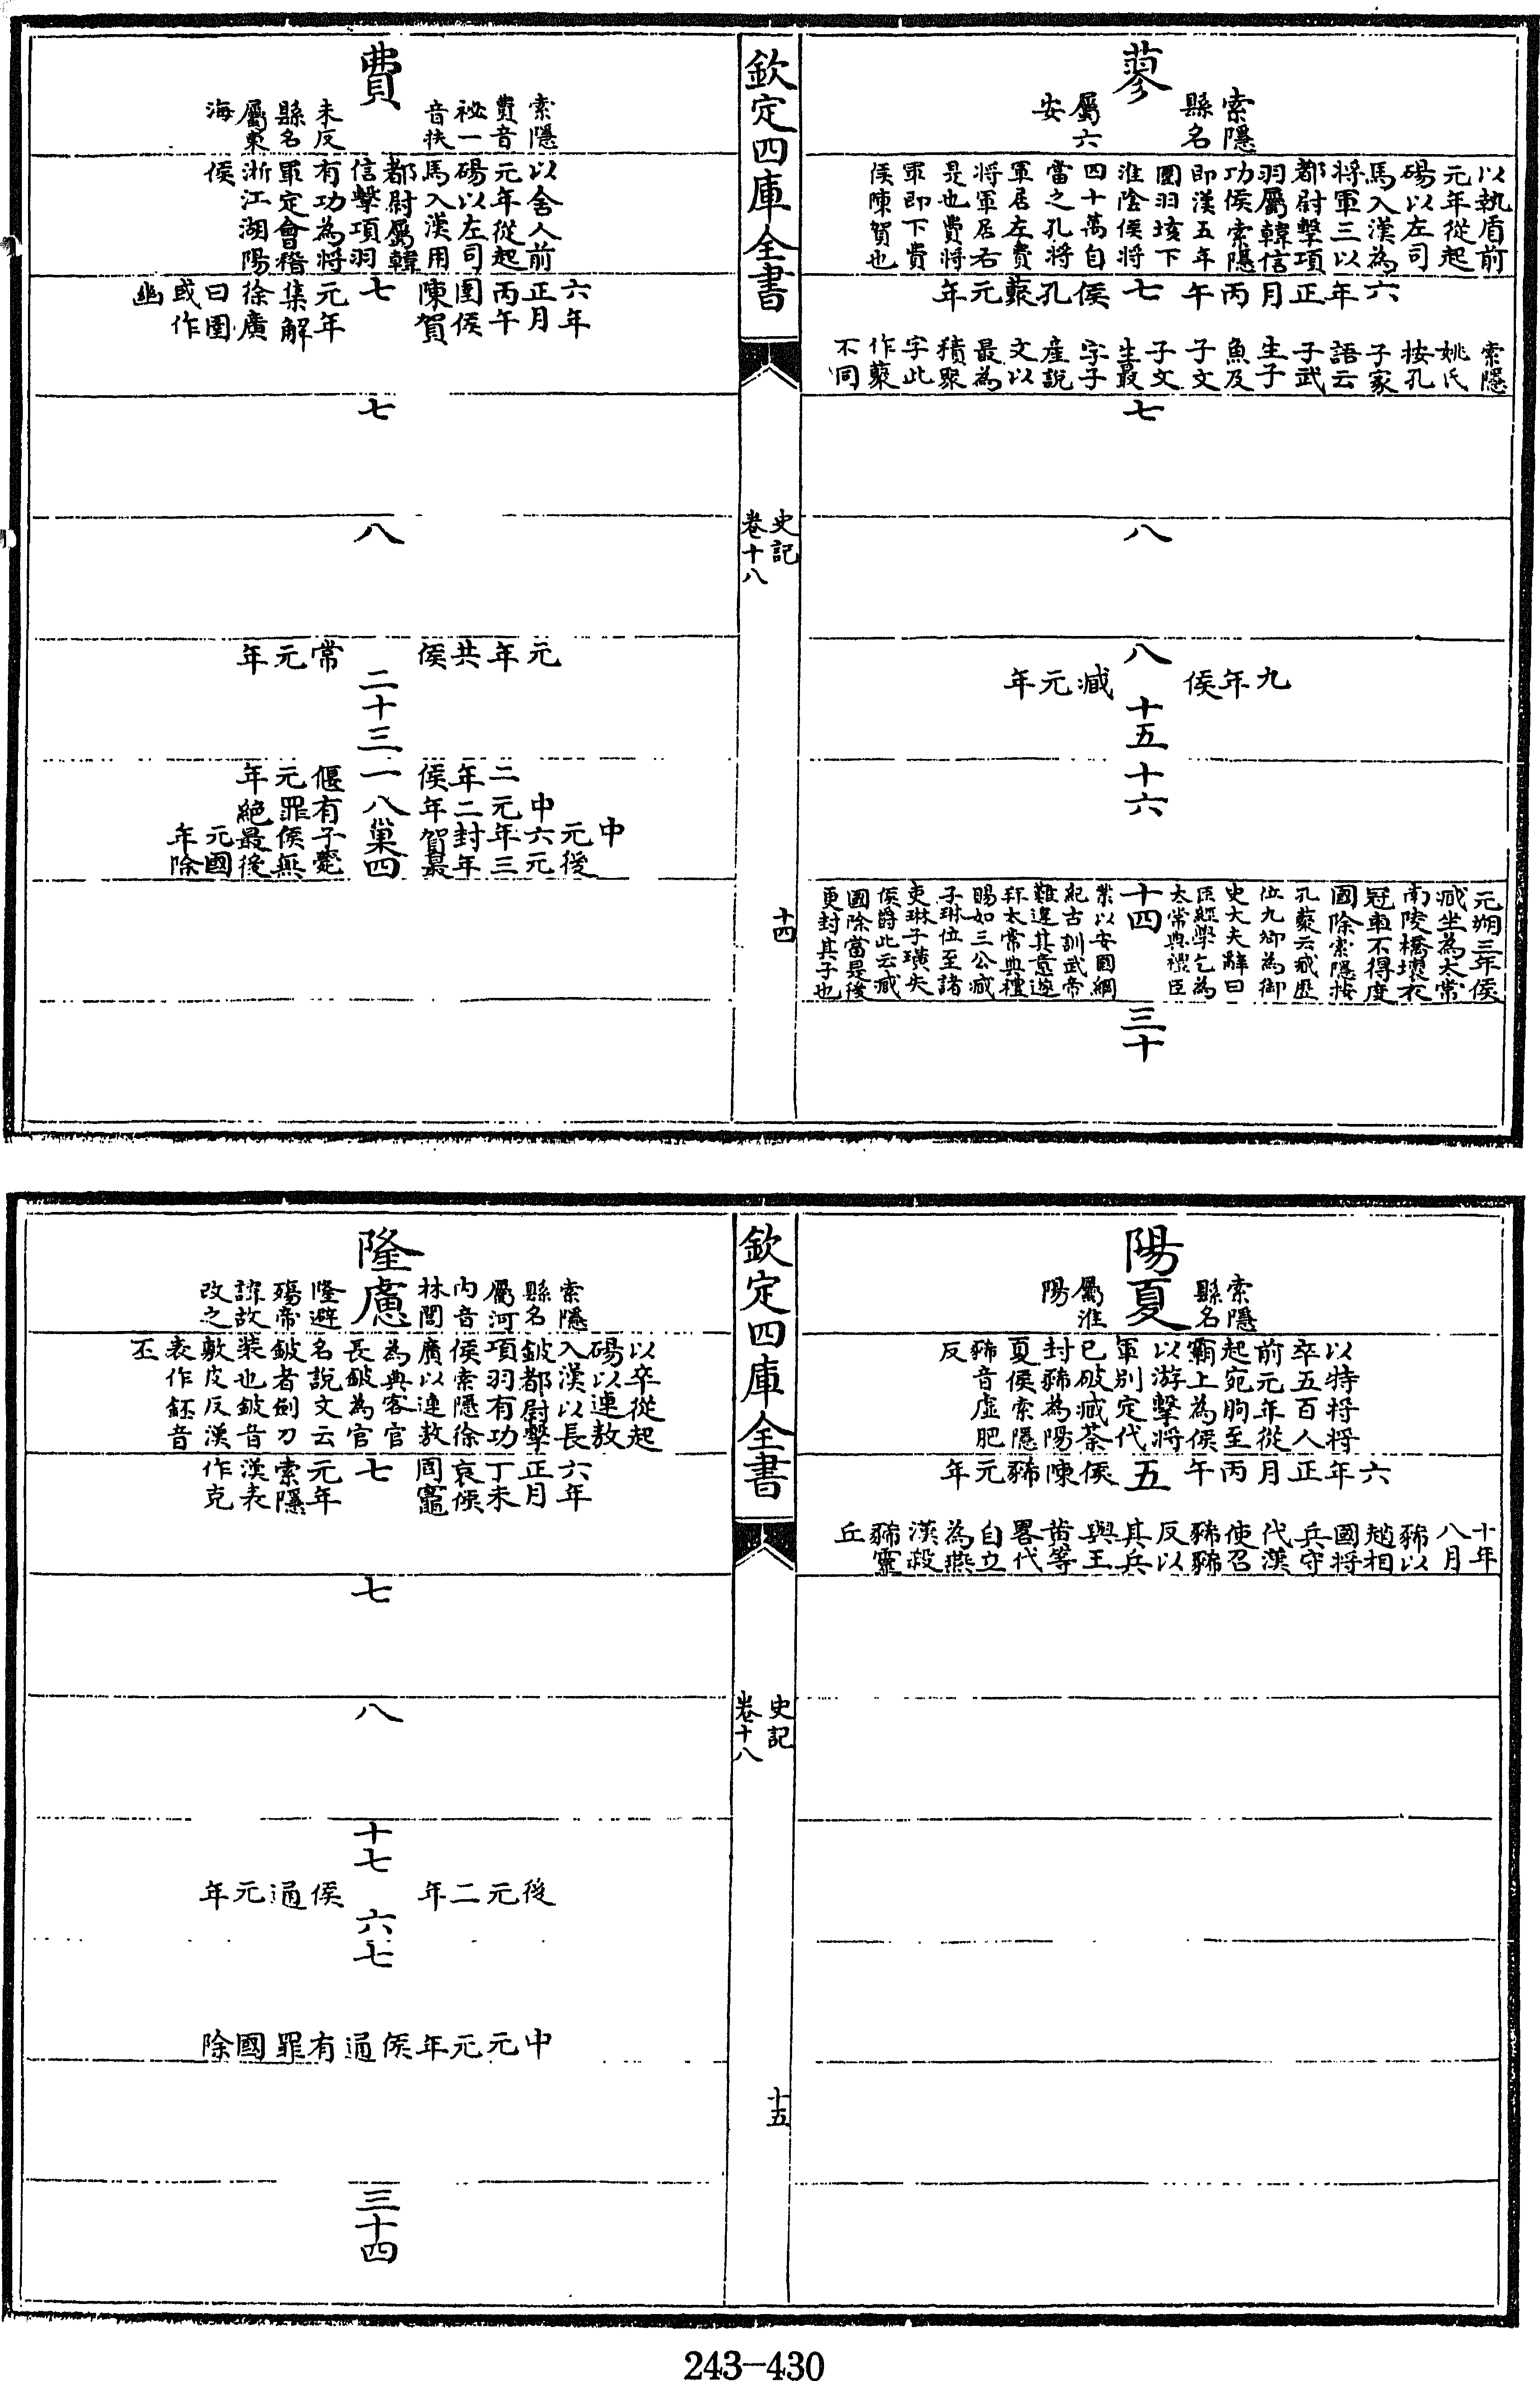 蓼
索隱
縣名
屬六
安
以執盾前
元年從起
碭以左司
馬入漢為
將軍三以
都尉擊項
羽屬韓信
功侯索隱
即漢五年
圍羽垓下
淮陰侯將
四十萬自
當之孔將
軍居左費
將軍居右
是也費將
軍即下費
侯陳賀也
六年正月丙午七侯孔藂元年
索隱
姚氏
按孔
子家
語云
子武
生子
魚及
子文
子文
生最
字子
產說
文以
最為
積聚
字此
作藂
不同
七
八
八
九年侯臧元年
十五
十六
元朔三年侯
臧坐為太常
南陵橋壞衣
冠車不得度
國除索隱按
孔藂云臧歷
位九卿為御
史大夫辭曰
臣經學乞為
太常典禮臣
十四
業以安國綱
紀古訓武帝
難違其意遂
拜太常典禮
賜如三公臧
子琳位至諸
吏琳子璜失
侯爵此云臧
國除當是後
更封其子也
三十
欽定四庫全書
史記
卷十八
十四
費
索隱
費音
祕一
音扶
未反
縣名
屬東
海
以舍人前
元年從起
碭以左司
馬入漢用
都尉屬韓
信擊項羽
有功為將
軍定會稽
浙江湖陽
侯
六年
正月
丙午
圉侯
陳賀
七
元年
集解
徐廣
曰圉
或作
幽
七
八
元年共侯常元年
二十三
二年侯偃元年
一
中元二年有罪絕
八
中元六年封賀子侯最元年
巢
後元三年最薨無後國除
四
陽夏
索隱
縣名
屬淮
陽
以特將將
卒五百人
前元年從
起宛朐至
霸上為侯
以游擊將
軍別定代
已破臧荼
封豨為陽
夏侯索隱
豨音虛肥
反
六年正月丙午五侯陳豨元年
十年
八月
豨以
趙相
國將
兵守
代漢
使召
豨豨
反以
其兵
與王
黃等
畧代
自立
為燕
漢殺
豨靈
丘
欽定四庫全書
史記
卷十八
十五
隆慮
索隱
縣名
屬河
内音
林閭
隆避
殤帝
諱故
改之
以卒從起
碭以連敖
入漢以長
鈹都尉擊
項羽有功
侯索隱徐
廣以連敖
為典客官
長鈹為官
名說文云
鈹者劍刀
装也鈹音
敷皮反漢
表作鉟音
丕
六年
正月
丁未
哀侯
周竈
七
元年
索隱
漢表
作克
七
八
十七
後元二年侯通元年
六
七
中元元年侯通有罪國除
三十四
243-430